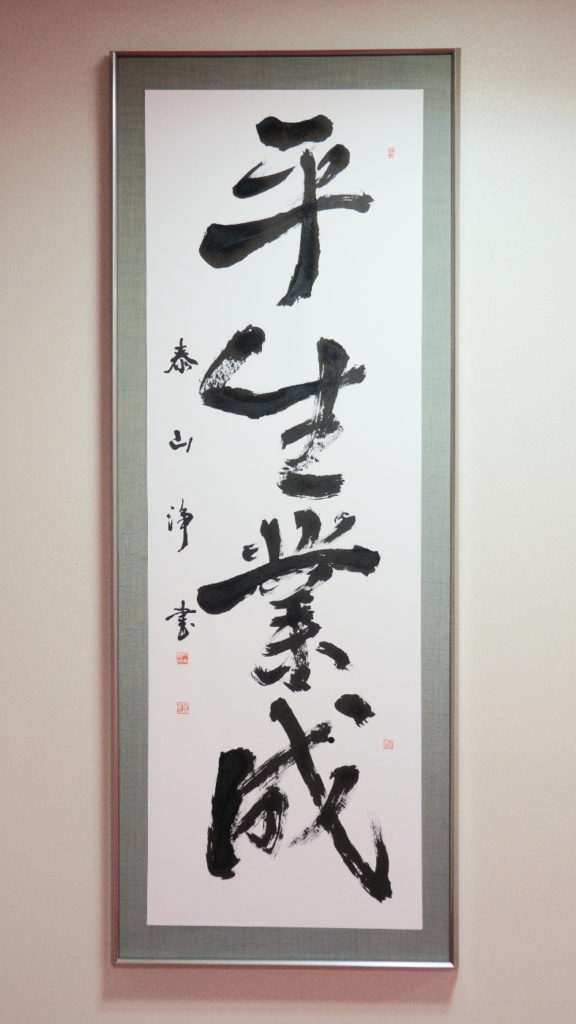 平生業成
泰山浄書